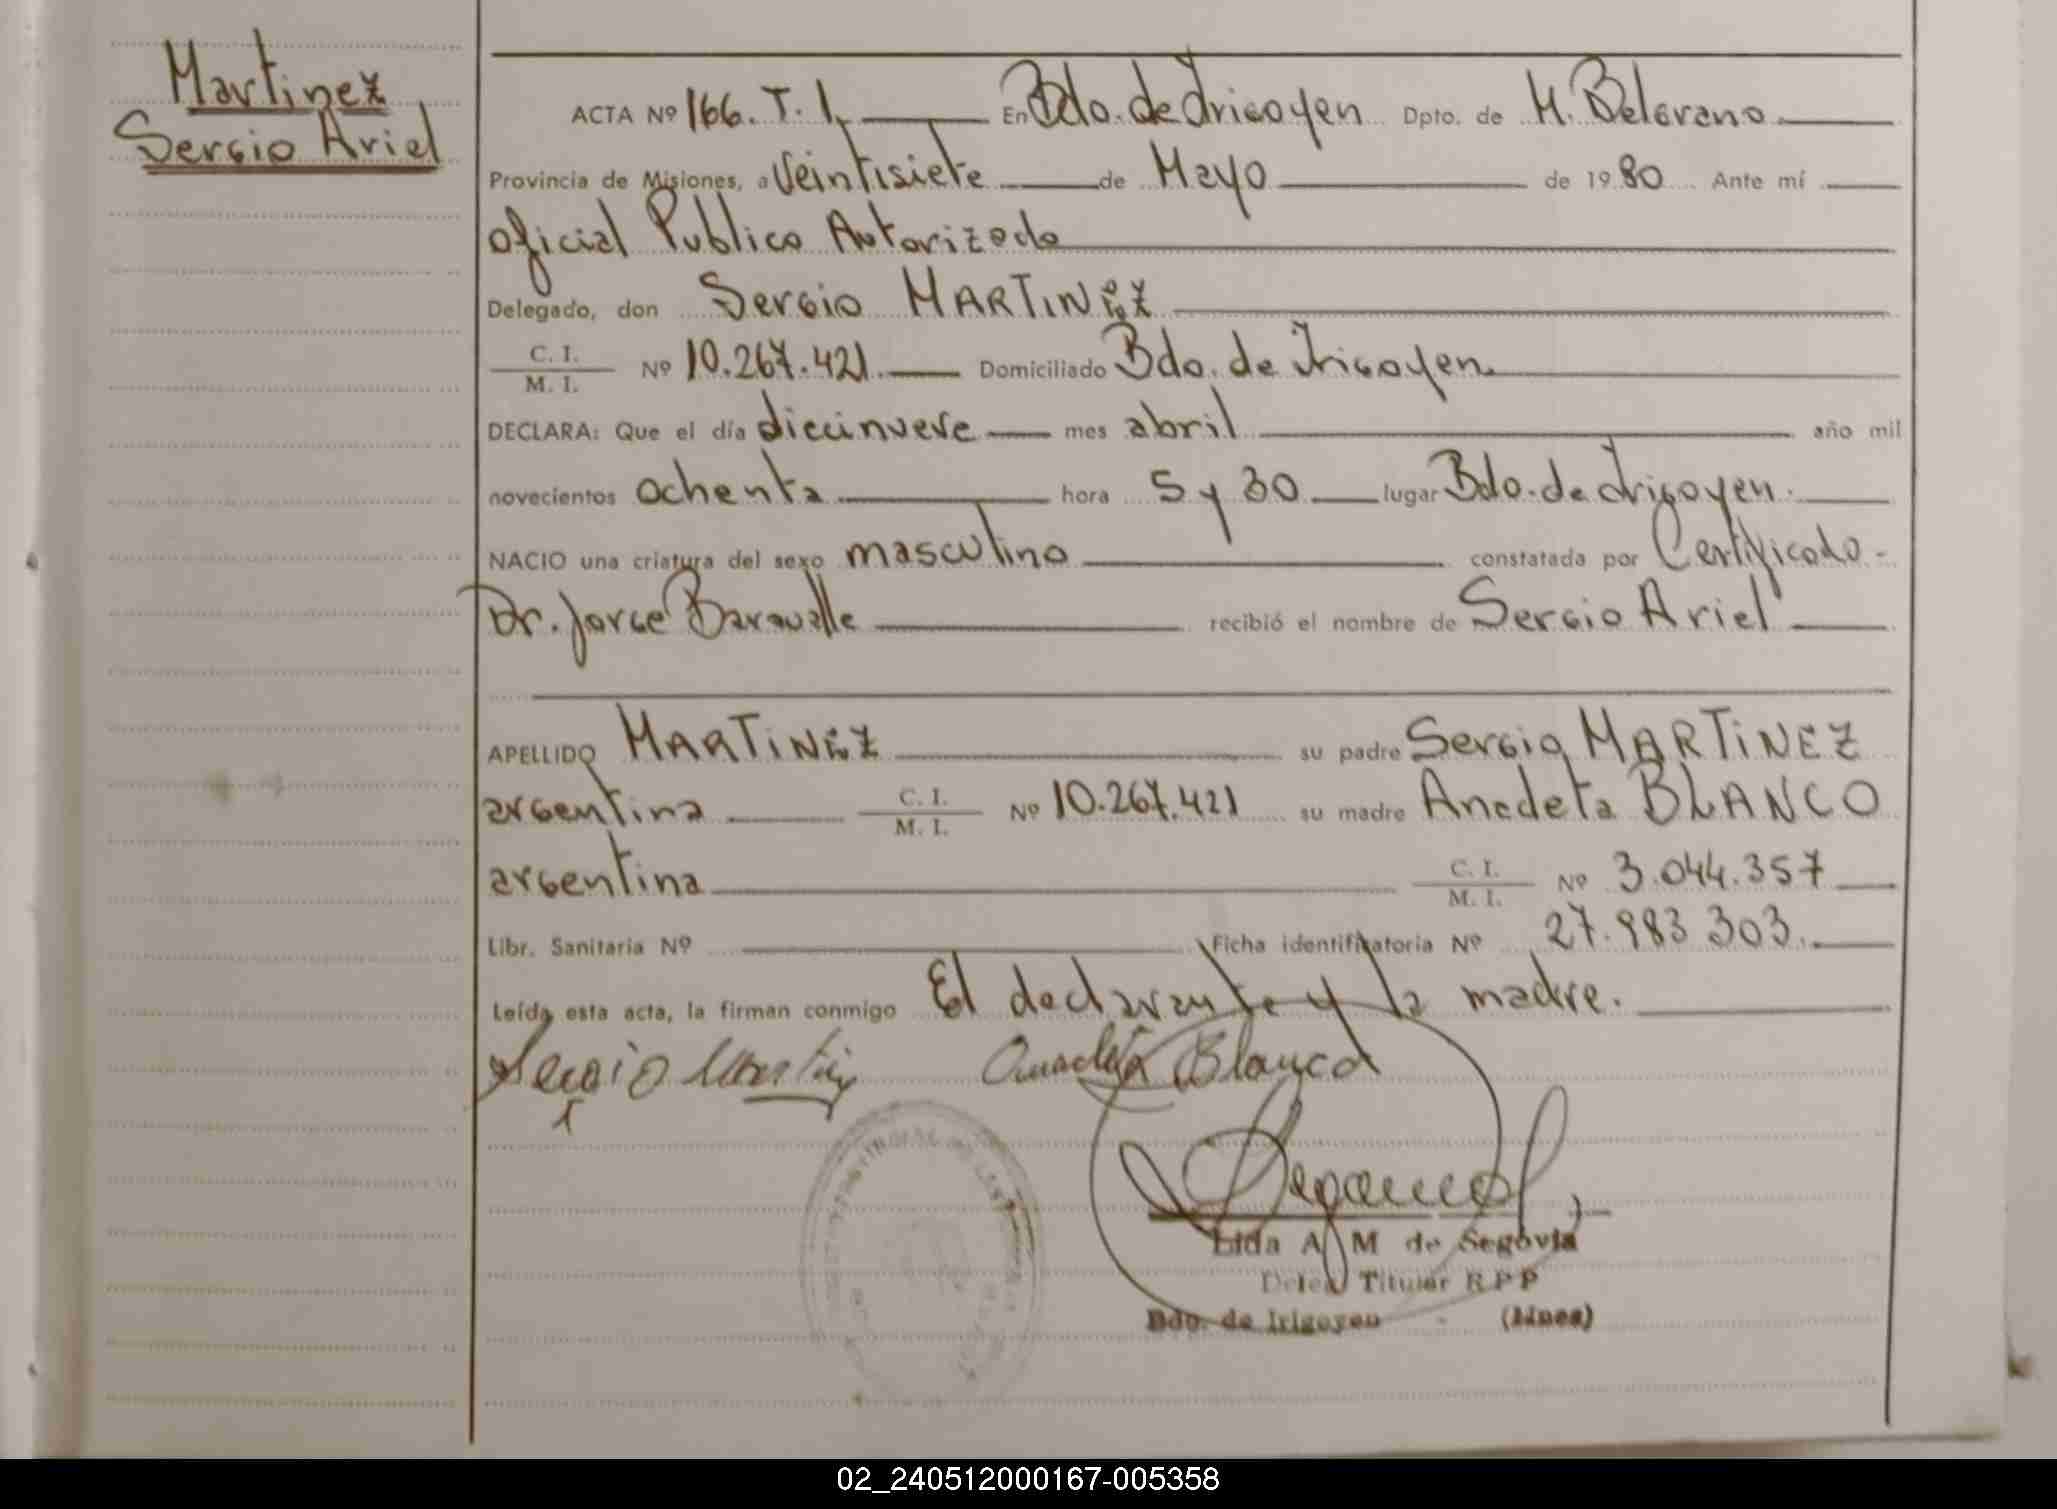 Martinez
Sergio Ariel
ACTA Nº 166. T. 1. En Bdo. de Irigoyen Dpto. de M. Belgrano
Provincia de Misiones, a Veintisiete de Mayo de 1980 Ante mí
oficial Publico Autorizado
Delegado, don Sergio MARTINEZ
C. I.
M. I. Nº 10.267.421 Domiciliado Bdo. de Irigoyen
DECLARA: Que el día diecinueve mes abril año mil
novecientos ochenta hora 5 y 30 lugar Bdo. de Irigoyen.
NACIO una criatura del sexo masculino constatada por Certificado-
Dr. Jorge Baravalle recibió el nombre de Sergio Ariel
APELLIDO MARTINEZ su padre Sergio MARTINEZ
argentina C. I. M. I. Nº 10.267.421 su madre Anacleta BLANCO
argentina C. I. M. I. Nº 3.044.357
Libr. Sanitaria Nº Ficha identificatoria Nº 27.983 303.
Leída esta acta, la firman conmigo El declarante y la madre.
Sergio Martinez Anacleta Blanco
A M de Segovia
Deleg Titular R P P
Bdo. de Irigoyen - (Mnes)
02_240512000167-005358